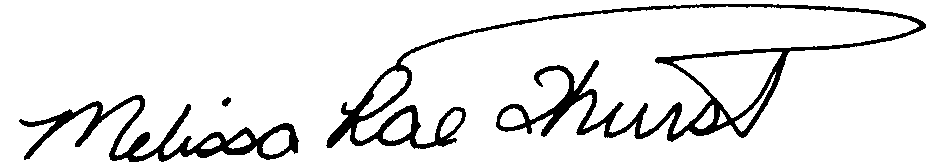 Melissa Rae Thurst